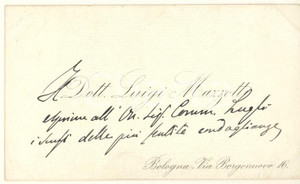 Il Dott. Luigi Mazzotti
esprime all' On. Sig. Comm. Lugli
i sensi delle più sentite condoglianze
Bologna - Via Borgonuovo 16.